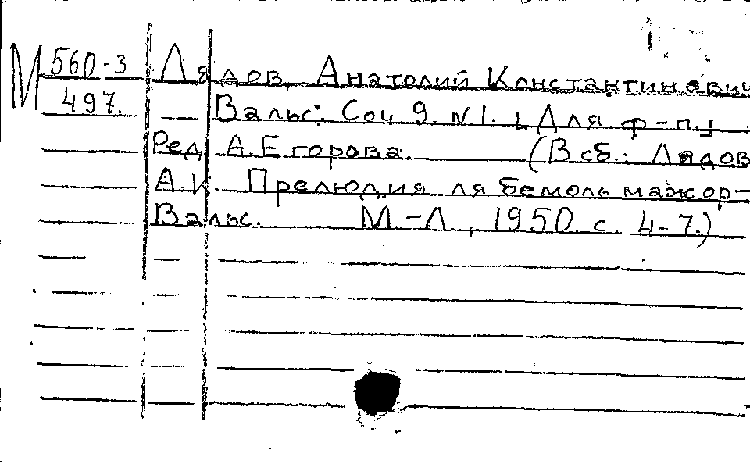 М 560-3 Лядов, Анатолий Константинович
497. Вальс: Соч. 9. N1. [Для ф-п.]
Ред. А. Егорова. (В сб.: Лядов
А.К. Прелюдия ля бемоль мажор-
Вальс. М.-Л., 1950 с. 4-7.)